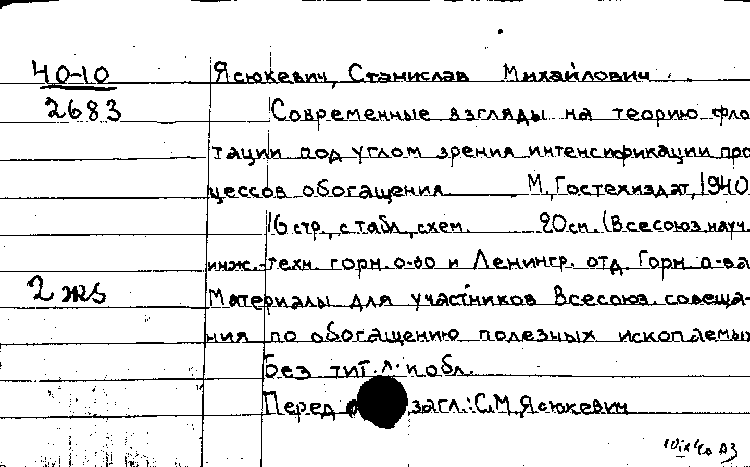 40-10 Ясюкевич, Станислав Михайлович.
2683 Современные взгляды на теорию фло
тации под углом зрения интенсификации про
цессов обогащения М, Гостехиздат, 1940
16 стр., с табл, схем. 20см. (Всесоюз. науч.
инж.-техн. горн. о-во и Ленингр. отд. Горн о-ва
2 экз Материалы для участников Всесоюз. совеща-
ния по обогащению полезных ископаемых
Без тит. л. и обл.
Перед загл.: С.М. Ясюкевич